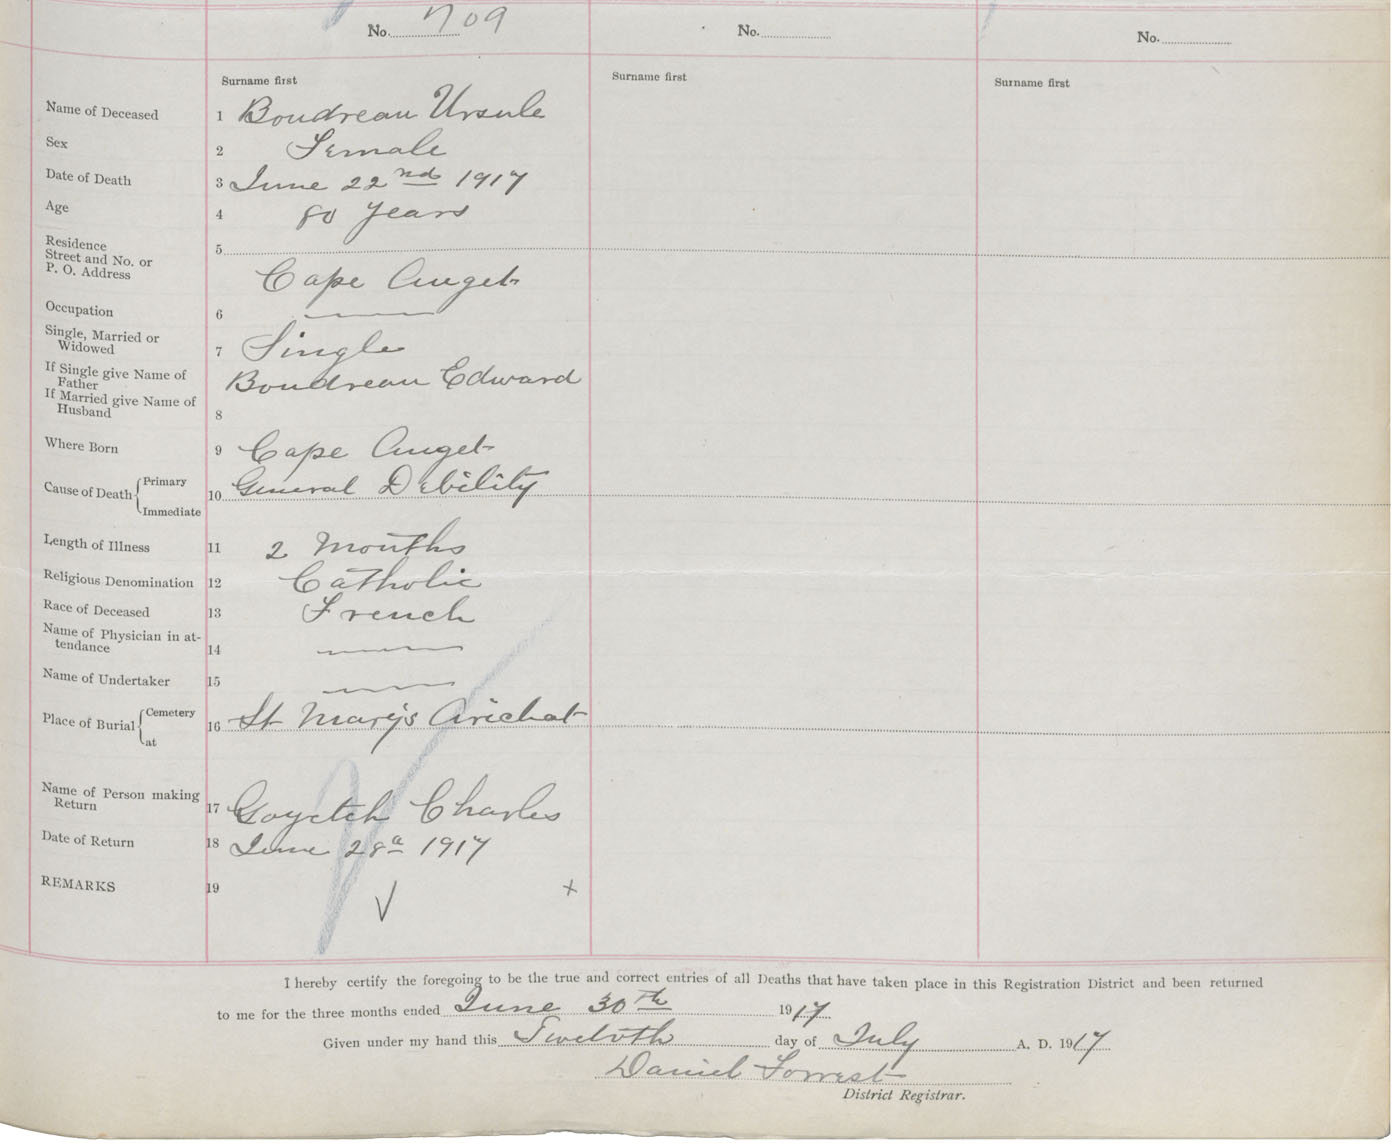 No. 709 No. No.
Surname first Surname first Surname first
Name of Deceased 1 Boudreau Ursule
Sex 2 Female
Date of Death 3 June 22nd 1917
Age 4 80 years
Residence
Street and No. or 5
P. O. Address Cape Auget
Occupation 6
Single, Married or
Widowed 7 Single
If Single give Name of
Father Boudreau Edward
If Married give Name of
Husband 8
Where Born 9 Cape Auget
Cause of Death { Primary
10 General Debility
Immediate
Length of Illness 11 2 Months
Religious Denomination 12 Catholic
Race of Deceased 13 French
Name of Physician in at-
tendance 14
Name of Undertaker 15
Place of Burial { Cemetery
16 St Mary's Arichat
at
Name of Person making
Return 17 Goyetch Charles
Date of Return 18 June 28a 1917
REMARKS 19
I hereby certify the foregoing to be the true and correct entries of all Deaths that have taken place in this Registration District and been returned
to me for the three months ended June 30th 1917
Given under my hand this Twelvth day of July A. D. 1917
Daniel Forrest
District Registrar.